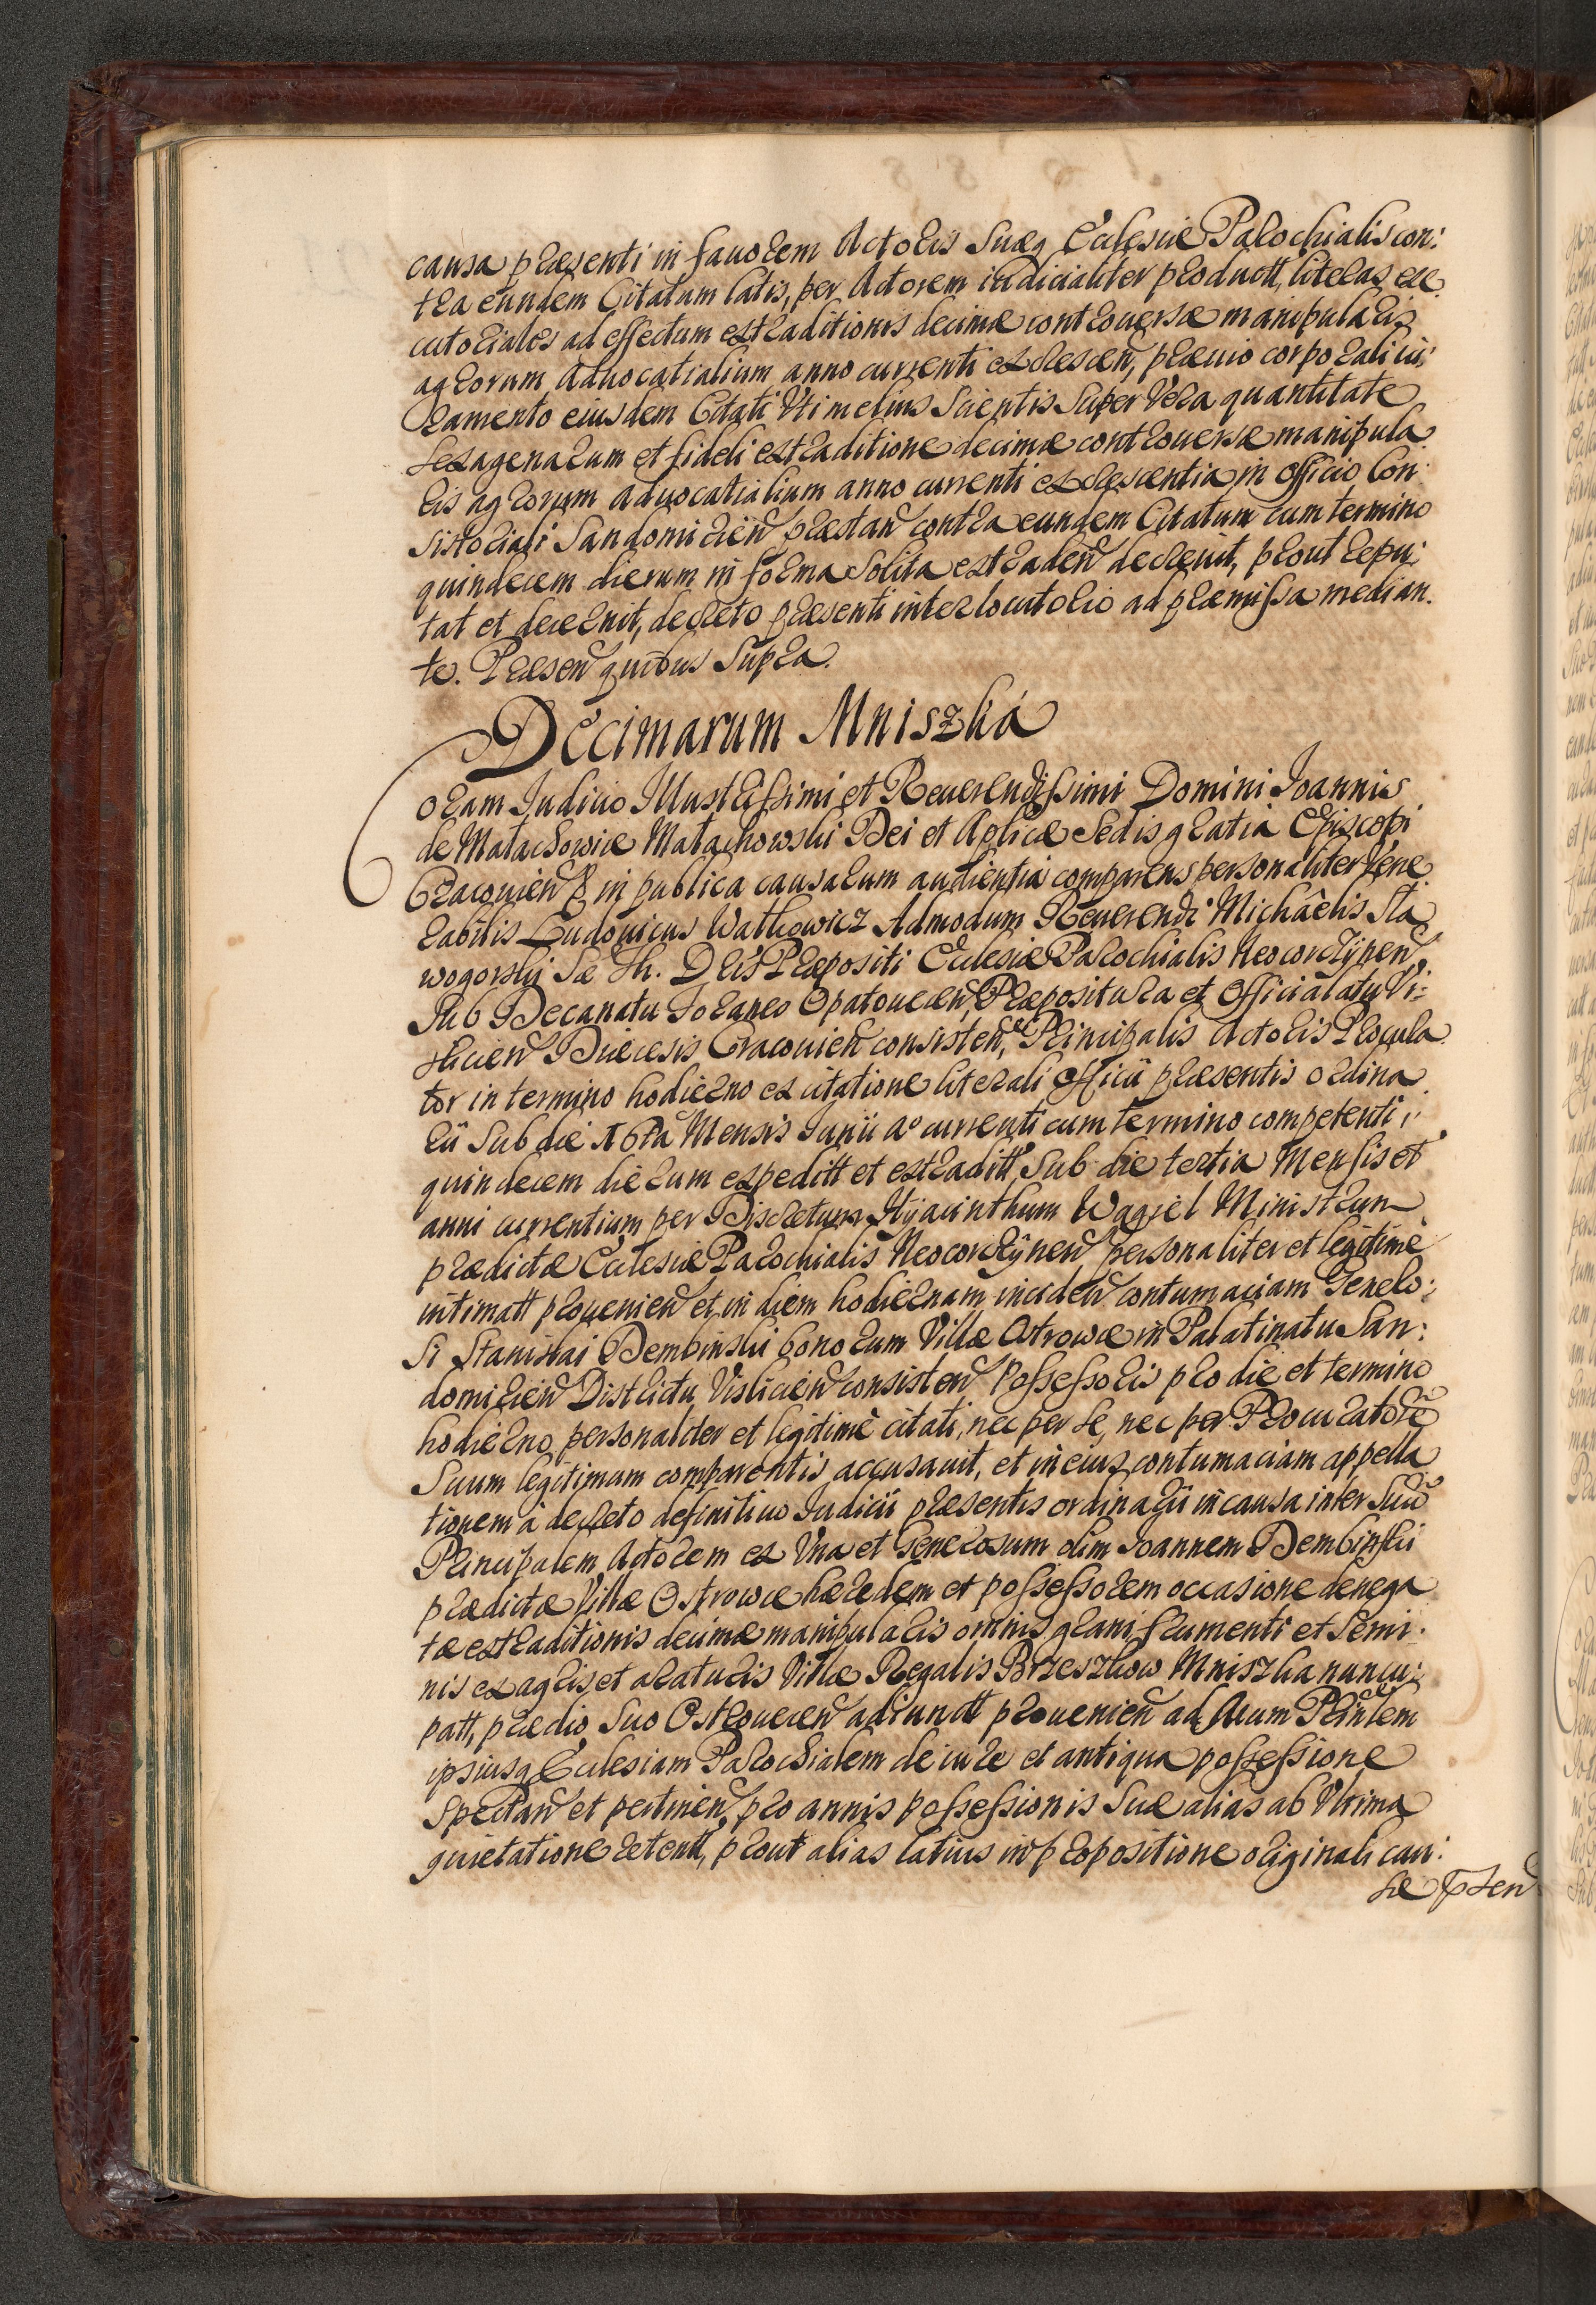 causa præsenti in fauorem Actoris Suæq Ecclesiæ Parochialis con:
tra eundem Citatum latis, per Actorem iudicialiter productt, literas exe
cutoriales ad effectum extraditionis decimæ controuersæ manipularis
agrorum Aduocatialium anno currenti excrescen, præuio corporali iu:
ramento eiusdem Citati Vti melius Scientis Super Vera quantitate
Sexagenarum et fideli extraditione decimæ controuersæ manipula
ris agrorum aduocatialium anno currenti excrescentia in officio Con
sistoriali Sandomirien præstan contra eundem Citatum cum termino
quindecem dierum in forma Solita extraden decreuit, prout repu:
tat et decernit, decreto præsenti interlocutorio ad præmissa median
te. Præsen quibus Supra.
Decimarum Mniszka
Coram Iudicio Illustrissimi et Reuerendissimi Domini Ioannis
de Małachowice Małachowski Dei et Aplicæ Sedis gratia Episcopi
Cracouien & in publica causarum audientia comparens personaliter Vene
rabilis Ludouicus Watkowicz Admodum Reuerendi Michaelis Sta
wogorski Sæ Th. Dris Præpositi Ecclesiæ Parochialis Neocorczynen
Sub Decanatu foraneo Opatouecen, Præpositura et Officialatu Vi:
slicien Diæcesis Cracouien consisten, Principalis Actoris Procura
tor in termino hodierno ex citatione literali Officii præsentis ordina
rii Sub die 16ta Mensis Iunii Ao currenti cum termino competenti
quindecem dierum expeditt et extraditt, Sub die tertia Mensis et
anni currentium per Discretum Hyacinthum Wągiel Ministrum
prædictæ Ecclesiæ Parochialis Neocorczynen personaliter et legitime
intimatt prouenien et in diem hodiernam inciden contumaciam Genero:
si Stanislai Dembinski bonorum Villæ Ostrowce in Palatinatu San:
domirien Districtu Vislicien consisten Possessoris pro die et termino
hodierno personaliter et legitime citati, nec per se, nec per Procuratore
Suum legitimum comparentis accusauit, et in eius contumaciam appella
tionem à decreto definitiuo Iudicii præsentis ordinarii in causa inter Suu
Principalem Actorem ex Vna et Generosum olim Ioannem Dembinski
prædictæ Villæ Ostrowce hæredem et possessorem occasione denega
tæ extraditionis decimæ manipularis omnis grani frumenti et Semi
nis ex agris et araturis Villæ Regalis Brzeszkow Mniszka nuncu:
patt, prædio Suo Ostrouecen adiunctt prouenien ad Suum Prinlem
ipsiusq Ecclesiam Parochialem de iure et antiqua possessione
Spectan et pertinen, pro annis possessionis Suæ alias ab Vltima
quietatione retentt, prout alias latius in propositione originali cau:
sæ præsen